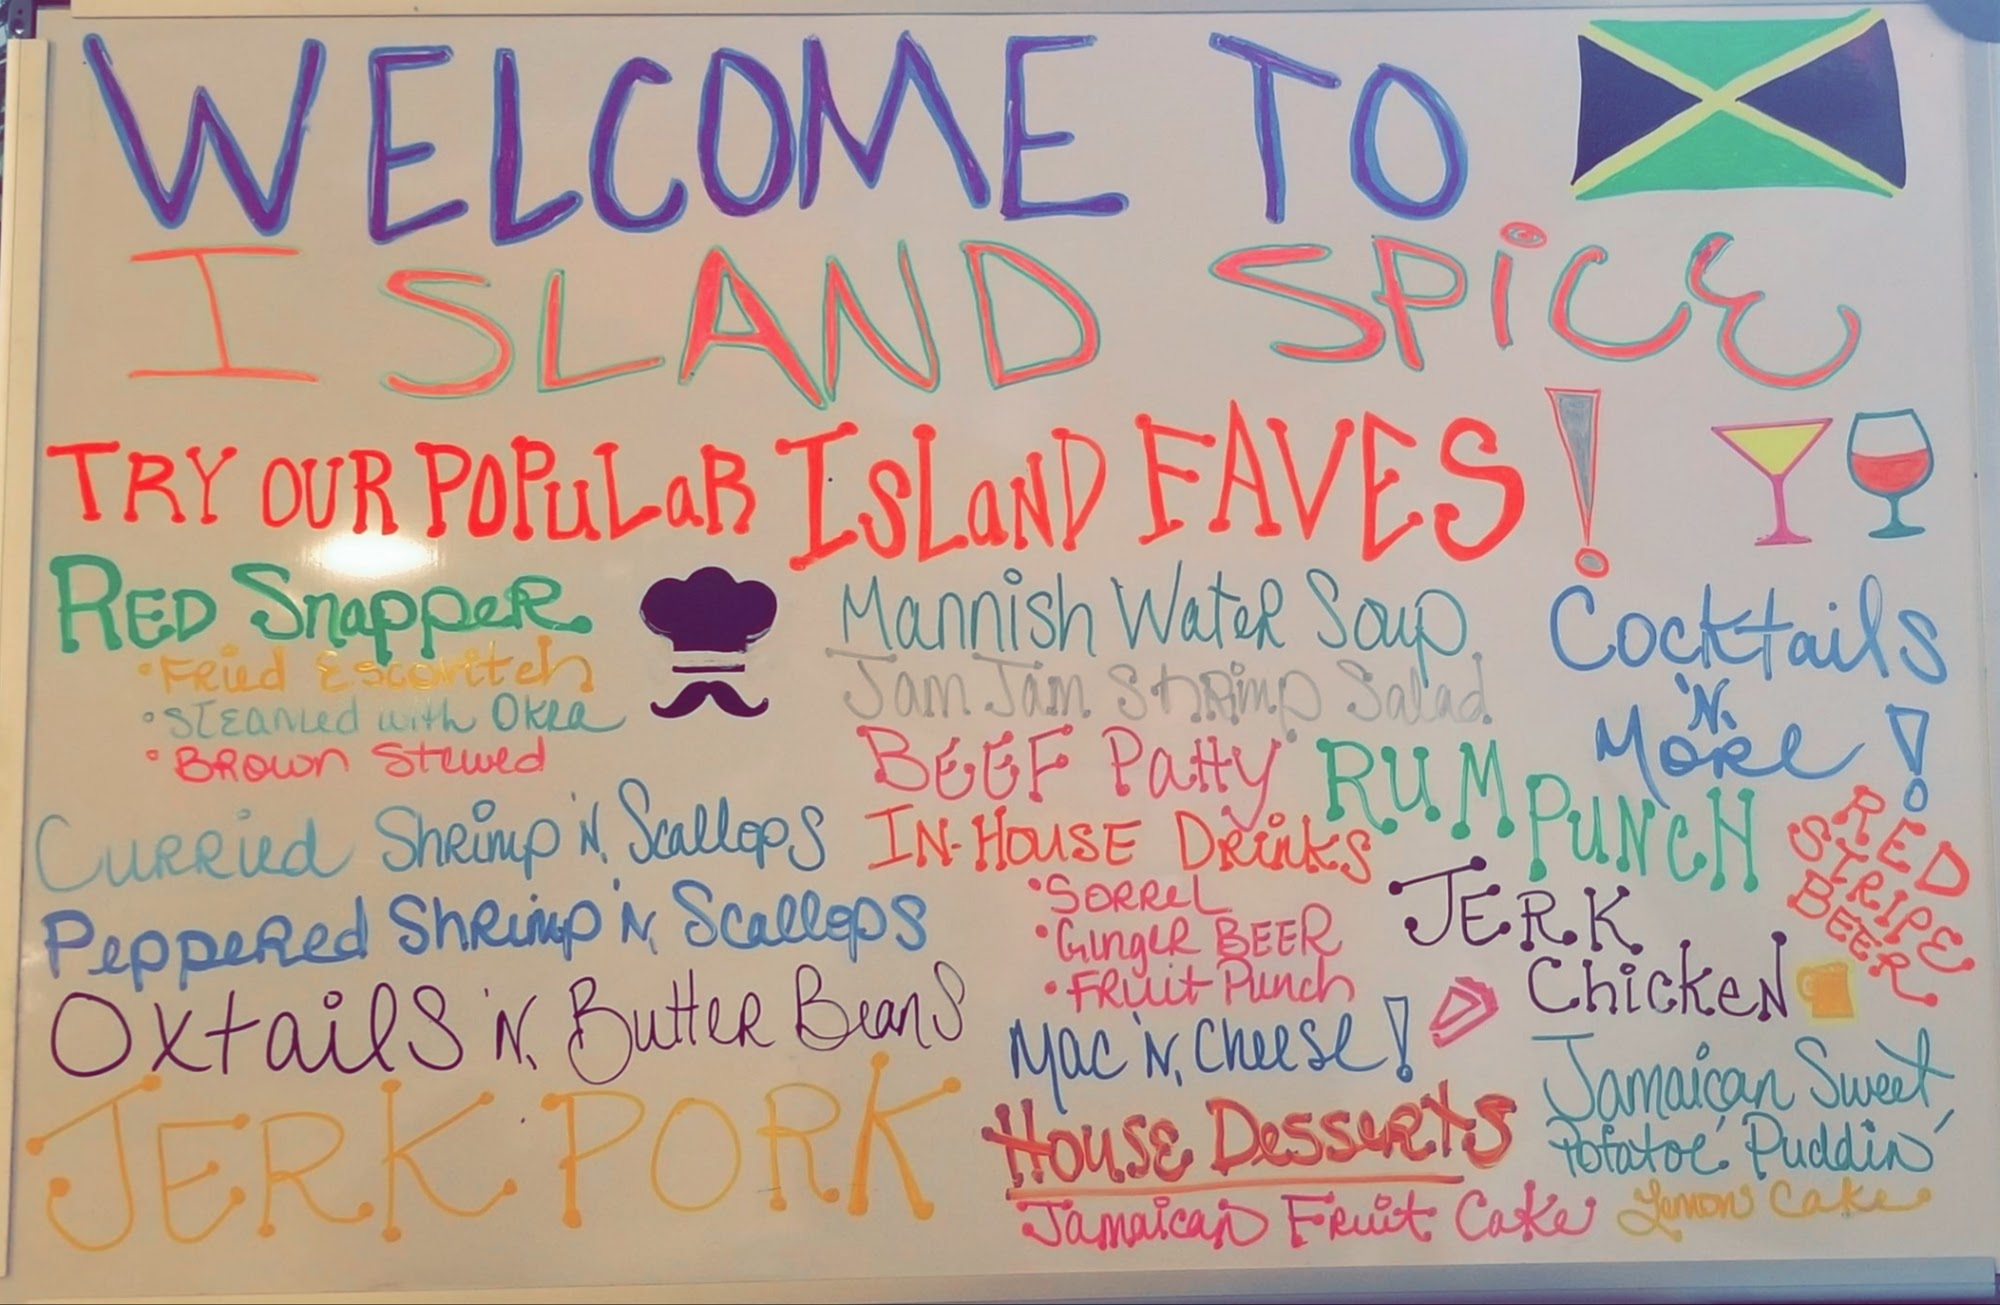 WELCOME TO
ISLAND SPiCE
TRY OUR POPuLaR ISLaND FAVES!
RED SnappeR
• FRied Escovitch
• STEamed with OkRa
• BRown Stewed
CuRRied ShRimp 'N, Scallops
PeppeRed ShRimp 'N, Scallops
Oxtails 'N, ButteR Beans
JERK PORK
Mannish WateR Soup
Jam Jam ShRimp Salad
BEEF Patty
IN-HOUSE Drinks
• SORREL
• GingeR BEER
• FRuit Punch
Mac 'N, Cheese!
House DesseRts
Jamaican FRuit Cake
Cocktails
'N,
MoRe!
RUM PUNcH
RED
STRIPE
BEER
JERK
ChickeN
Jamaican Sweet
Potatoe' Puddin'
Lemon Cake